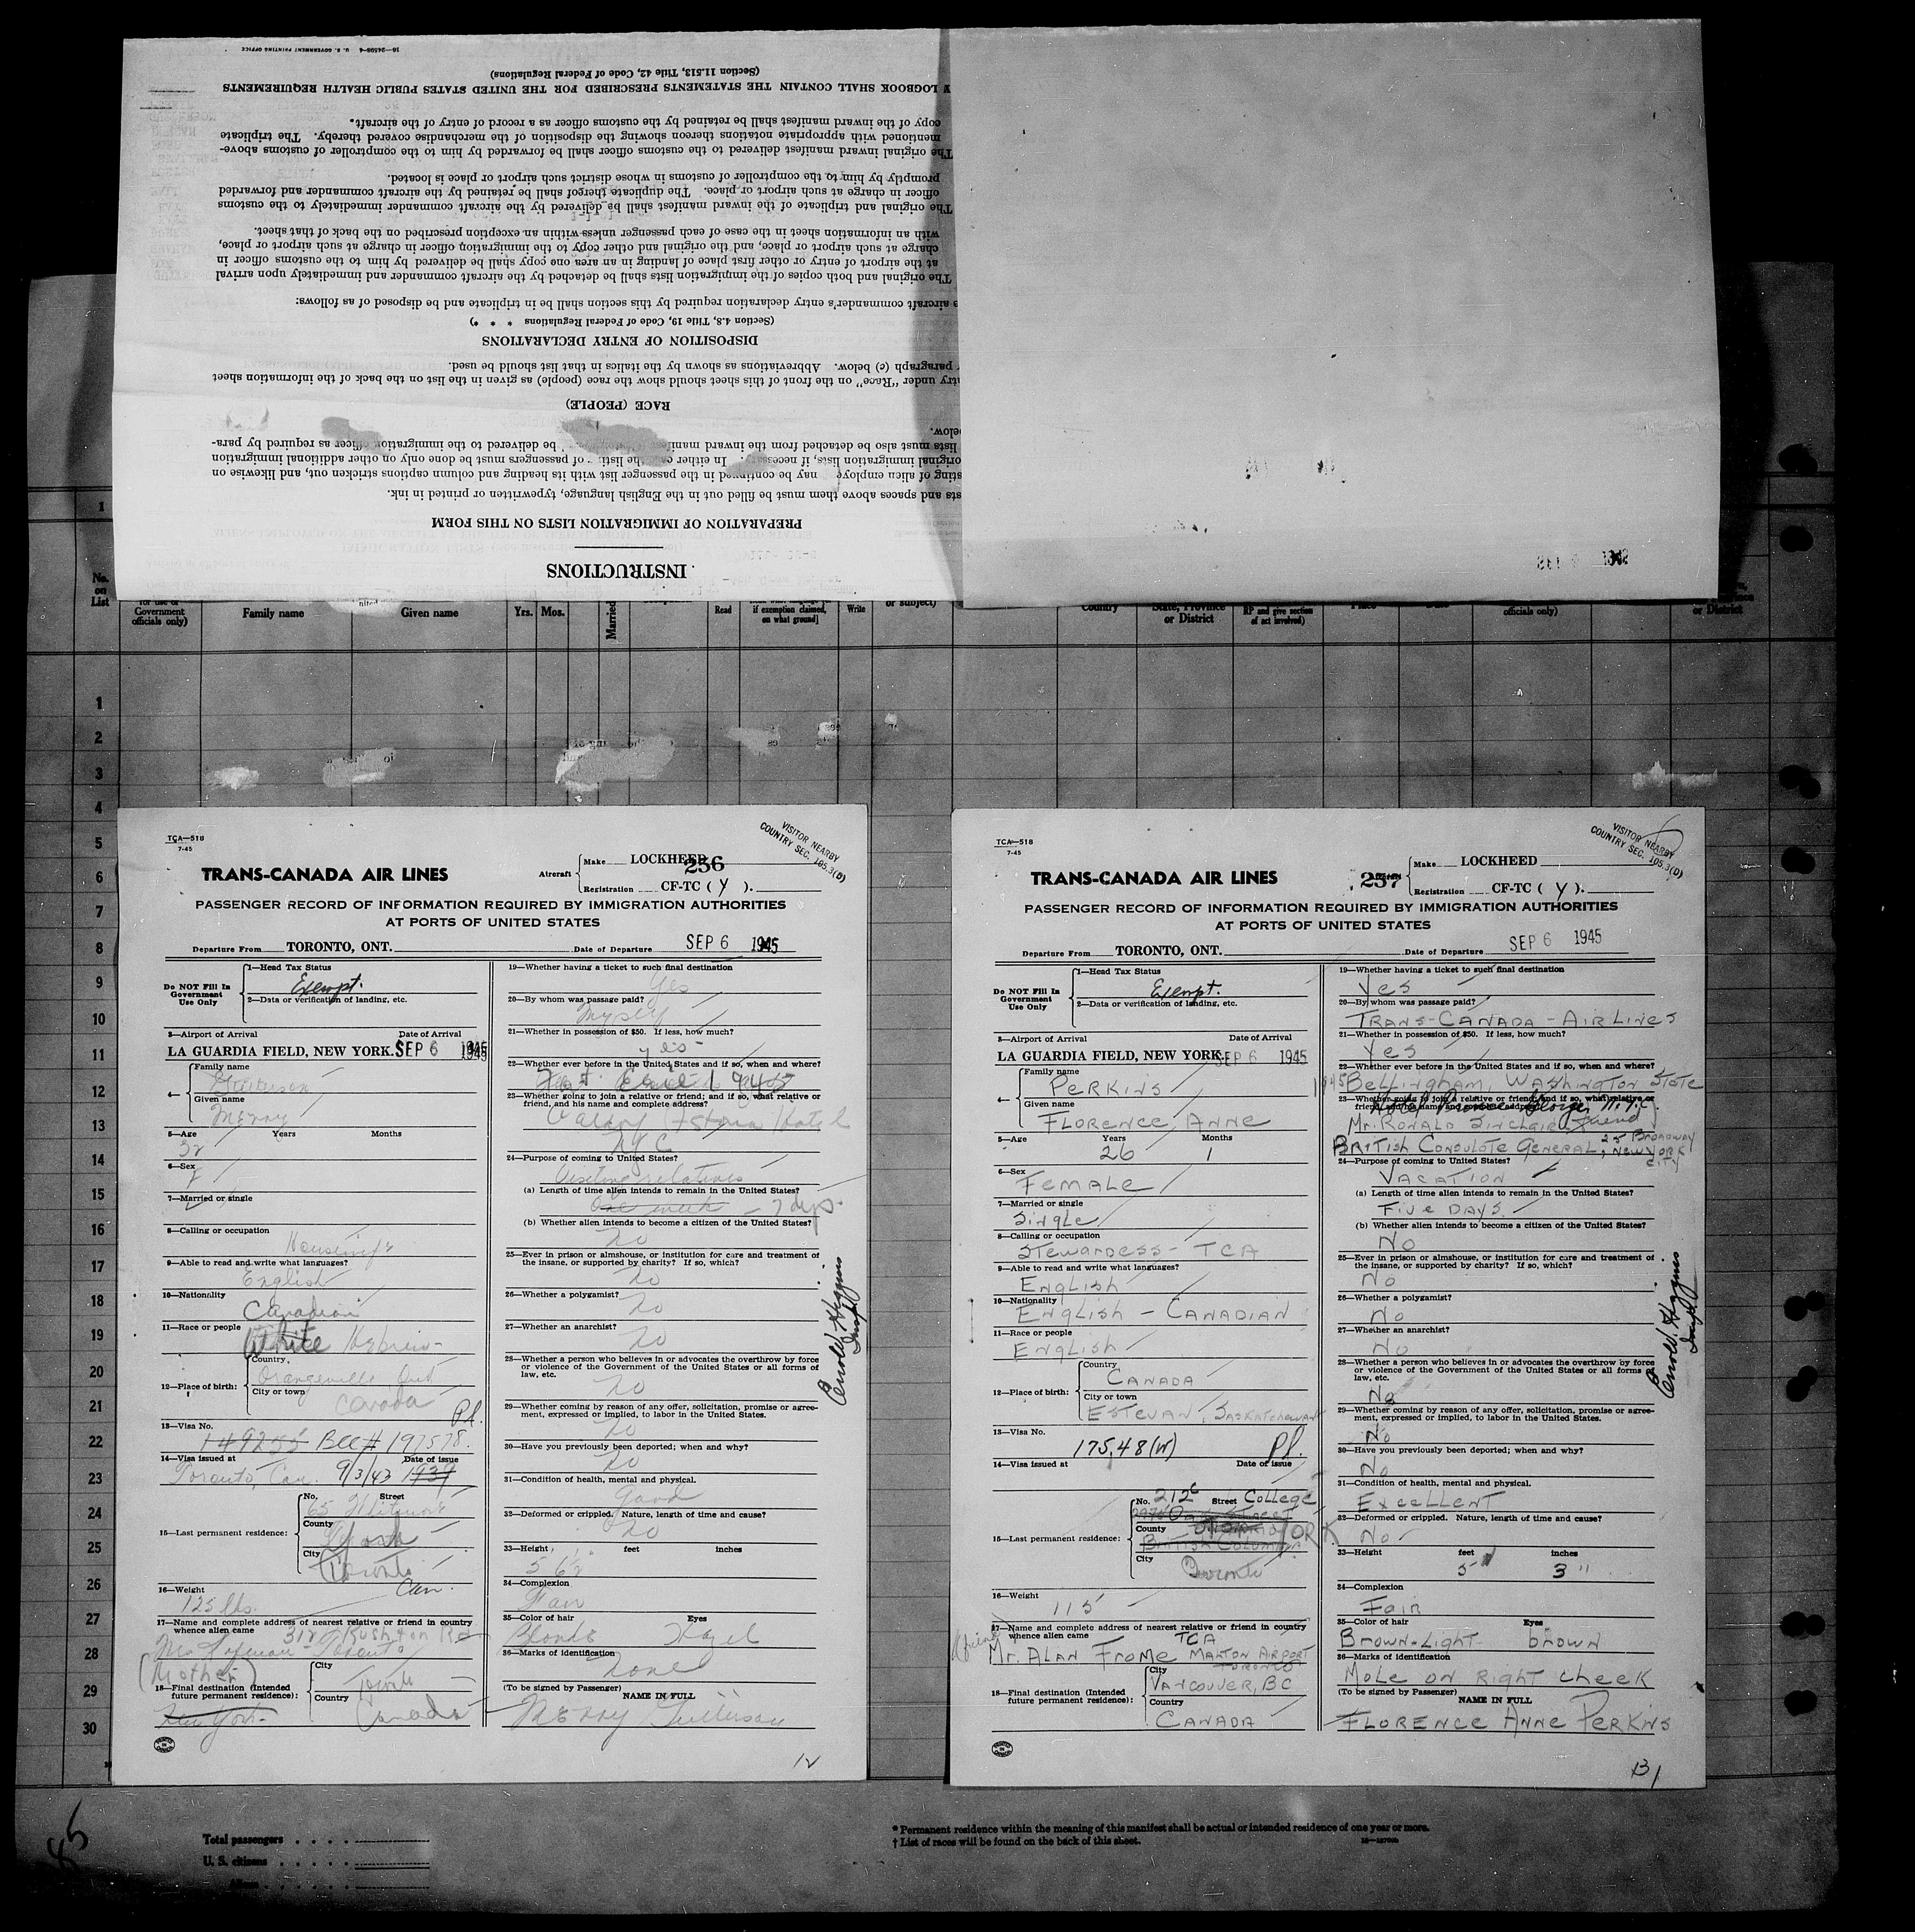 16—24598-4 U. S. GOVERNMENT PRINTING OFFICE
(Section 11.513, Title 42, Code of Federal Regulations)
LOGBOOK SHALL CONTAIN THE STATEMENTS PRESCRIBED FOR THE UNITED STATES PUBLIC HEALTH REQUIREMENTS
copy of the inward manifest shall be retained by the customs officer as a record of entry of the aircraft.
mentioned with appropriate notations thereon showing the disposition of the merchandise covered thereby. The triplicate
The original inward manifest delivered to the customs officer shall be forwarded by him to the comptroller of customs above-
promptly by him to the comptroller of customs in whose district such airport or place is located.
officer in charge at such airport or place. The duplicate thereof shall be retained by the aircraft commander and forwarded
The original and triplicate of the inward manifest shall be delivered by the aircraft commander immediately to the customs
with an information sheet in the case of each passenger unless within an exception prescribed on the back of that sheet.
charge at such airport or place, and the original and other copy to the immigration officer in charge at such airport or place,
at the airport of entry or other first place of landing in an area one copy shall be delivered by him to the customs officer in
The original and both copies of the immigration lists shall be detached by the aircraft commander and immediately upon arrival
aircraft commander's entry declaration required by this section shall be in triplicate and be disposed of as follows:
(Section 4.8, Title 19, Code of Federal Regulations * * *)
DISPOSITION OF ENTRY DECLARATIONS
paragraph (c) below. Abbreviations as shown by the italics in that list should be used.
under "Race" on the front of this sheet should show the race (people) as given in the list on the back of the information sheet
RACE (PEOPLE)
below.
lists must also be detached from the inward be delivered to the immigration officer as required by para-
original immigration lists, if In either of passengers must be done only on other additional immigration
of alien may be continued in the passenger list with its heading and column captions stricken out, and likewise on
and spaces above them must be filled out in the English language, typewritten or printed in ink.
PREPARATION OF IMMIGRATION LISTS ON THIS FORM
INSTRUCTIONS
1
No. on List
Government officials only)
Family name
Given name
Yrs.
Mos.
Married
Read
if exemption claimed, on what ground]
Write
or subject)
Country
State, Province or District
RP and give section of act involved)
officials only)
or District
1
2
3
4
5
6
7
8
9
10
11
12
13
14
15
16
17
18
19
20
21
22
23
24
25
26
27
28
29
30
TCA—518
7-45
VISITOR NEARBY
COUNTRY SEC. 105.3(D)
TRANS-CANADA AIR LINES
Aircraft
Make LOCKHEED
256
Registration CF-TC ( Y ).
PASSENGER RECORD OF INFORMATION REQUIRED BY IMMIGRATION AUTHORITIES
AT PORTS OF UNITED STATES
Departure From TORONTO, ONT. Date of Departure SEP 6 1945
Do NOT Fill In Government Use Only
1—Head Tax Status
Exempt.
2—Data or verification of landing, etc.
3—Airport of Arrival Date of Arrival
LA GUARDIA FIELD, NEW YORK. SEP 6 1945
4—
Family name
Given name
5—Age Years Months
32
6—Sex
F
7—Married or single
8—Calling or occupation
Housewife
9—Able to read and write what languages?
English
10—Nationality
Canadian
11—Race or people
White Hebrew
12—Place of birth:
Country,
Orangeville Ont
City or town
Canada
13—Visa No.
149255 BCC# 197578. Pl.
14—Visa issued at Date of issue
Toronto, Can. 9/3/43 1939
15—Last permanent residence:
No. Street
65
County
York
City
Toronto
Can.
16—Weight
125 lbs.
17—Name and complete address of nearest relative or friend in country
whence alien came
312 Rushton Rd
Toronto
(Mother)
18—Final destination (Intended
future permanent residence):
New York
City
Country
Canada
19—Whether having a ticket to such final destination
Yes
20—By whom was passage paid?
Myself
21—Whether in possession of $50. If less, how much?
yes
22—Whether ever before in the United States and if so, when and where?
1945
23—Whether going to join a relative or friend; and if so, what relative or
friend, and his name and complete address?
Hotel
NYC
24—Purpose of coming to United States?
Visiting relatives
(a) Length of time alien intends to remain in the United States?
One week — 7 dys.
(b) Whether alien intends to become a citizen of the United States?
No
25—Ever in prison or almshouse, or institution for care and treatment of
the insane, or supported by charity? If so, which?
No
26—Whether a polygamist?
No
27—Whether an anarchist?
No
28—Whether a person who believes in or advocates the overthrow by force
or violence of the Government of the United States or all forms of
law, etc.
No
29—Whether coming by reason of any offer, solicitation, promise or agree-
ment, expressed or implied, to labor in the United States.
No
30—Have you previously been deported; when and why?
No
31—Condition of health, mental and physical.
Good
32—Deformed or crippled. Nature, length of time and cause?
No
33—Height, feet inches
5 6½
34—Complexion
Fair
35—Color of hair Eyes
Blonde Hazel
36—Marks of identification
None
(To be signed by Passenger) NAME IN FULL
12
TCA—518
7-45
VISITOR NEARBY
COUNTRY SEC. 105.3(D)
TRANS-CANADA AIR LINES
257
Make LOCKHEED
Registration CF-TC ( Y ).
PASSENGER RECORD OF INFORMATION REQUIRED BY IMMIGRATION AUTHORITIES
AT PORTS OF UNITED STATES
Departure From TORONTO, ONT. Date of Departure SEP 6 1945
Do NOT Fill In Government Use Only
1—Head Tax Status
Exempt.
2—Data or verification of landing, etc.
3—Airport of Arrival Date of Arrival
LA GUARDIA FIELD, NEW YORK. SEP 6 1945
4—
Family name
PERKINS
Given name
FLORENCE ANNE
5—Age Years Months
26 1
6—Sex
FEMALE
7—Married or single
SINGLE
8—Calling or occupation
STEWARDESS - TCA
9—Able to read and write what languages?
ENGLISH
10—Nationality
ENGLISH - CANADIAN
11—Race or people
ENGLISH
12—Place of birth:
Country
CANADA
City or town
ESTEVAN, SASKATCHEWAN
13—Visa No.
17548(W) Pl.
14—Visa issued at Date of issue
15—Last permanent residence:
No. 212 Street COLLEGE
County YORK
BRITISH COLUMBIA
City
Toronto
16—Weight
115
17—Name and complete address of nearest relative or friend in country
whence alien came
(friend)
TCA
MR. ALAN FROME MALTON AIRPORT
TORONTO
18—Final destination (Intended
future permanent residence):
City
VANCOUVER, BC
Country
CANADA
19—Whether having a ticket to such final destination
YES
20—By whom was passage paid?
TRANS-CANADA-AIRLINES
21—Whether in possession of $50. If less, how much?
YES
22—Whether ever before in the United States and if so, when and where?
1945 BELLINGHAM, WASHINGTON STATE
23—Whether going to join a relative or friend; and if so, what relative or
friend, and his name and complete address?
Hotel Prince George N.Y.C.
MR. RONALD SINCLAIR friend
BRITISH CONSULATE GENERAL, 25 BROADWAY
NEW YORK CITY
24—Purpose of coming to United States?
VACATION
(a) Length of time alien intends to remain in the United States?
FIVE DAYS.
(b) Whether alien intends to become a citizen of the United States?
NO
25—Ever in prison or almshouse, or institution for care and treatment of
the insane, or supported by charity? If so, which?
NO
26—Whether a polygamist?
NO
27—Whether an anarchist?
NO
28—Whether a person who believes in or advocates the overthrow by force
or violence of the Government of the United States or all forms of
law, etc.
NO
29—Whether coming by reason of any offer, solicitation, promise or agree-
ment, expressed or implied, to labor in the United States.
NO
30—Have you previously been deported; when and why?
NO
31—Condition of health, mental and physical.
EXCELLENT
32—Deformed or crippled. Nature, length of time and cause?
NO
33—Height feet inches
5' 3"
34—Complexion
FAIR
35—Color of hair Eyes
BROWN-LIGHT BROWN
36—Marks of identification
MOLE ON RIGHT CHEEK
(To be signed by Passenger)
NAME IN FULL
FLORENCE ANNE PERKINS
13
85
Total passengers
U. S. citizens
Aliens
* Permanent residence within the meaning of this manifest shall be actual or intended residence of one year or more.
† List of races will be found on the back of this sheet.